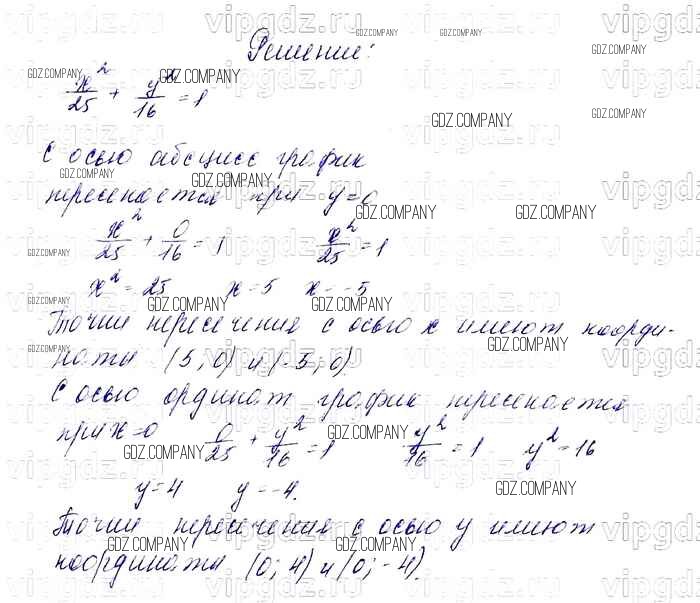 Решение:
x²/25 + y²/16 = 1
С осью абсцисс график
пересекается при y=0
x²/25 + 0/16 = 1 x²/25 = 1
x² = 25 x = 5 x = -5
Точки пересечения с осью x имеют коорди-
наты (5; 0) и (-5; 0)
С осью ординат график пересекается
при x=0 0/25 + y²/16 = 1 y²/16 = 1 y² = 16
y=4 y=-4.
Точки пересечения с осью y имеют
координаты (0; 4) и (0; -4).